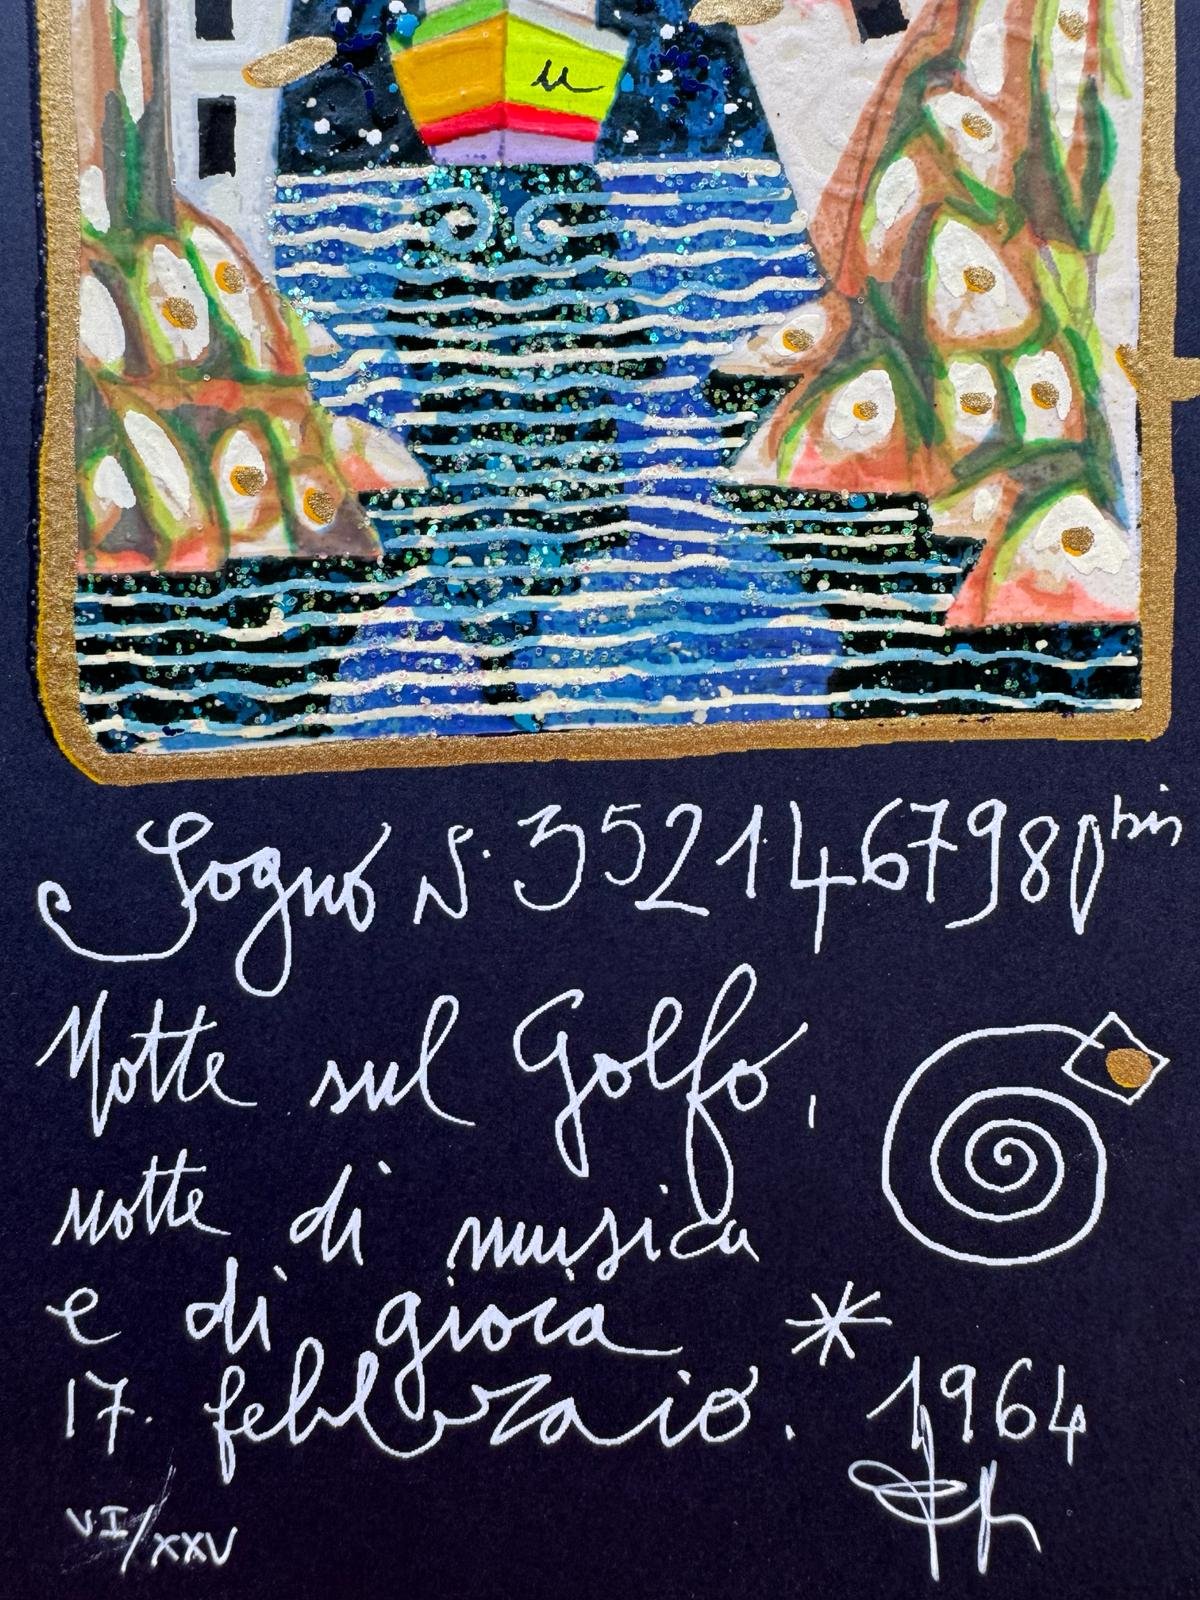 u
Sogno N. 3521467980 bis
Notte sul Golfo,
notte di musica
e di gioia
17. febbraio. 1964
VI/XXV